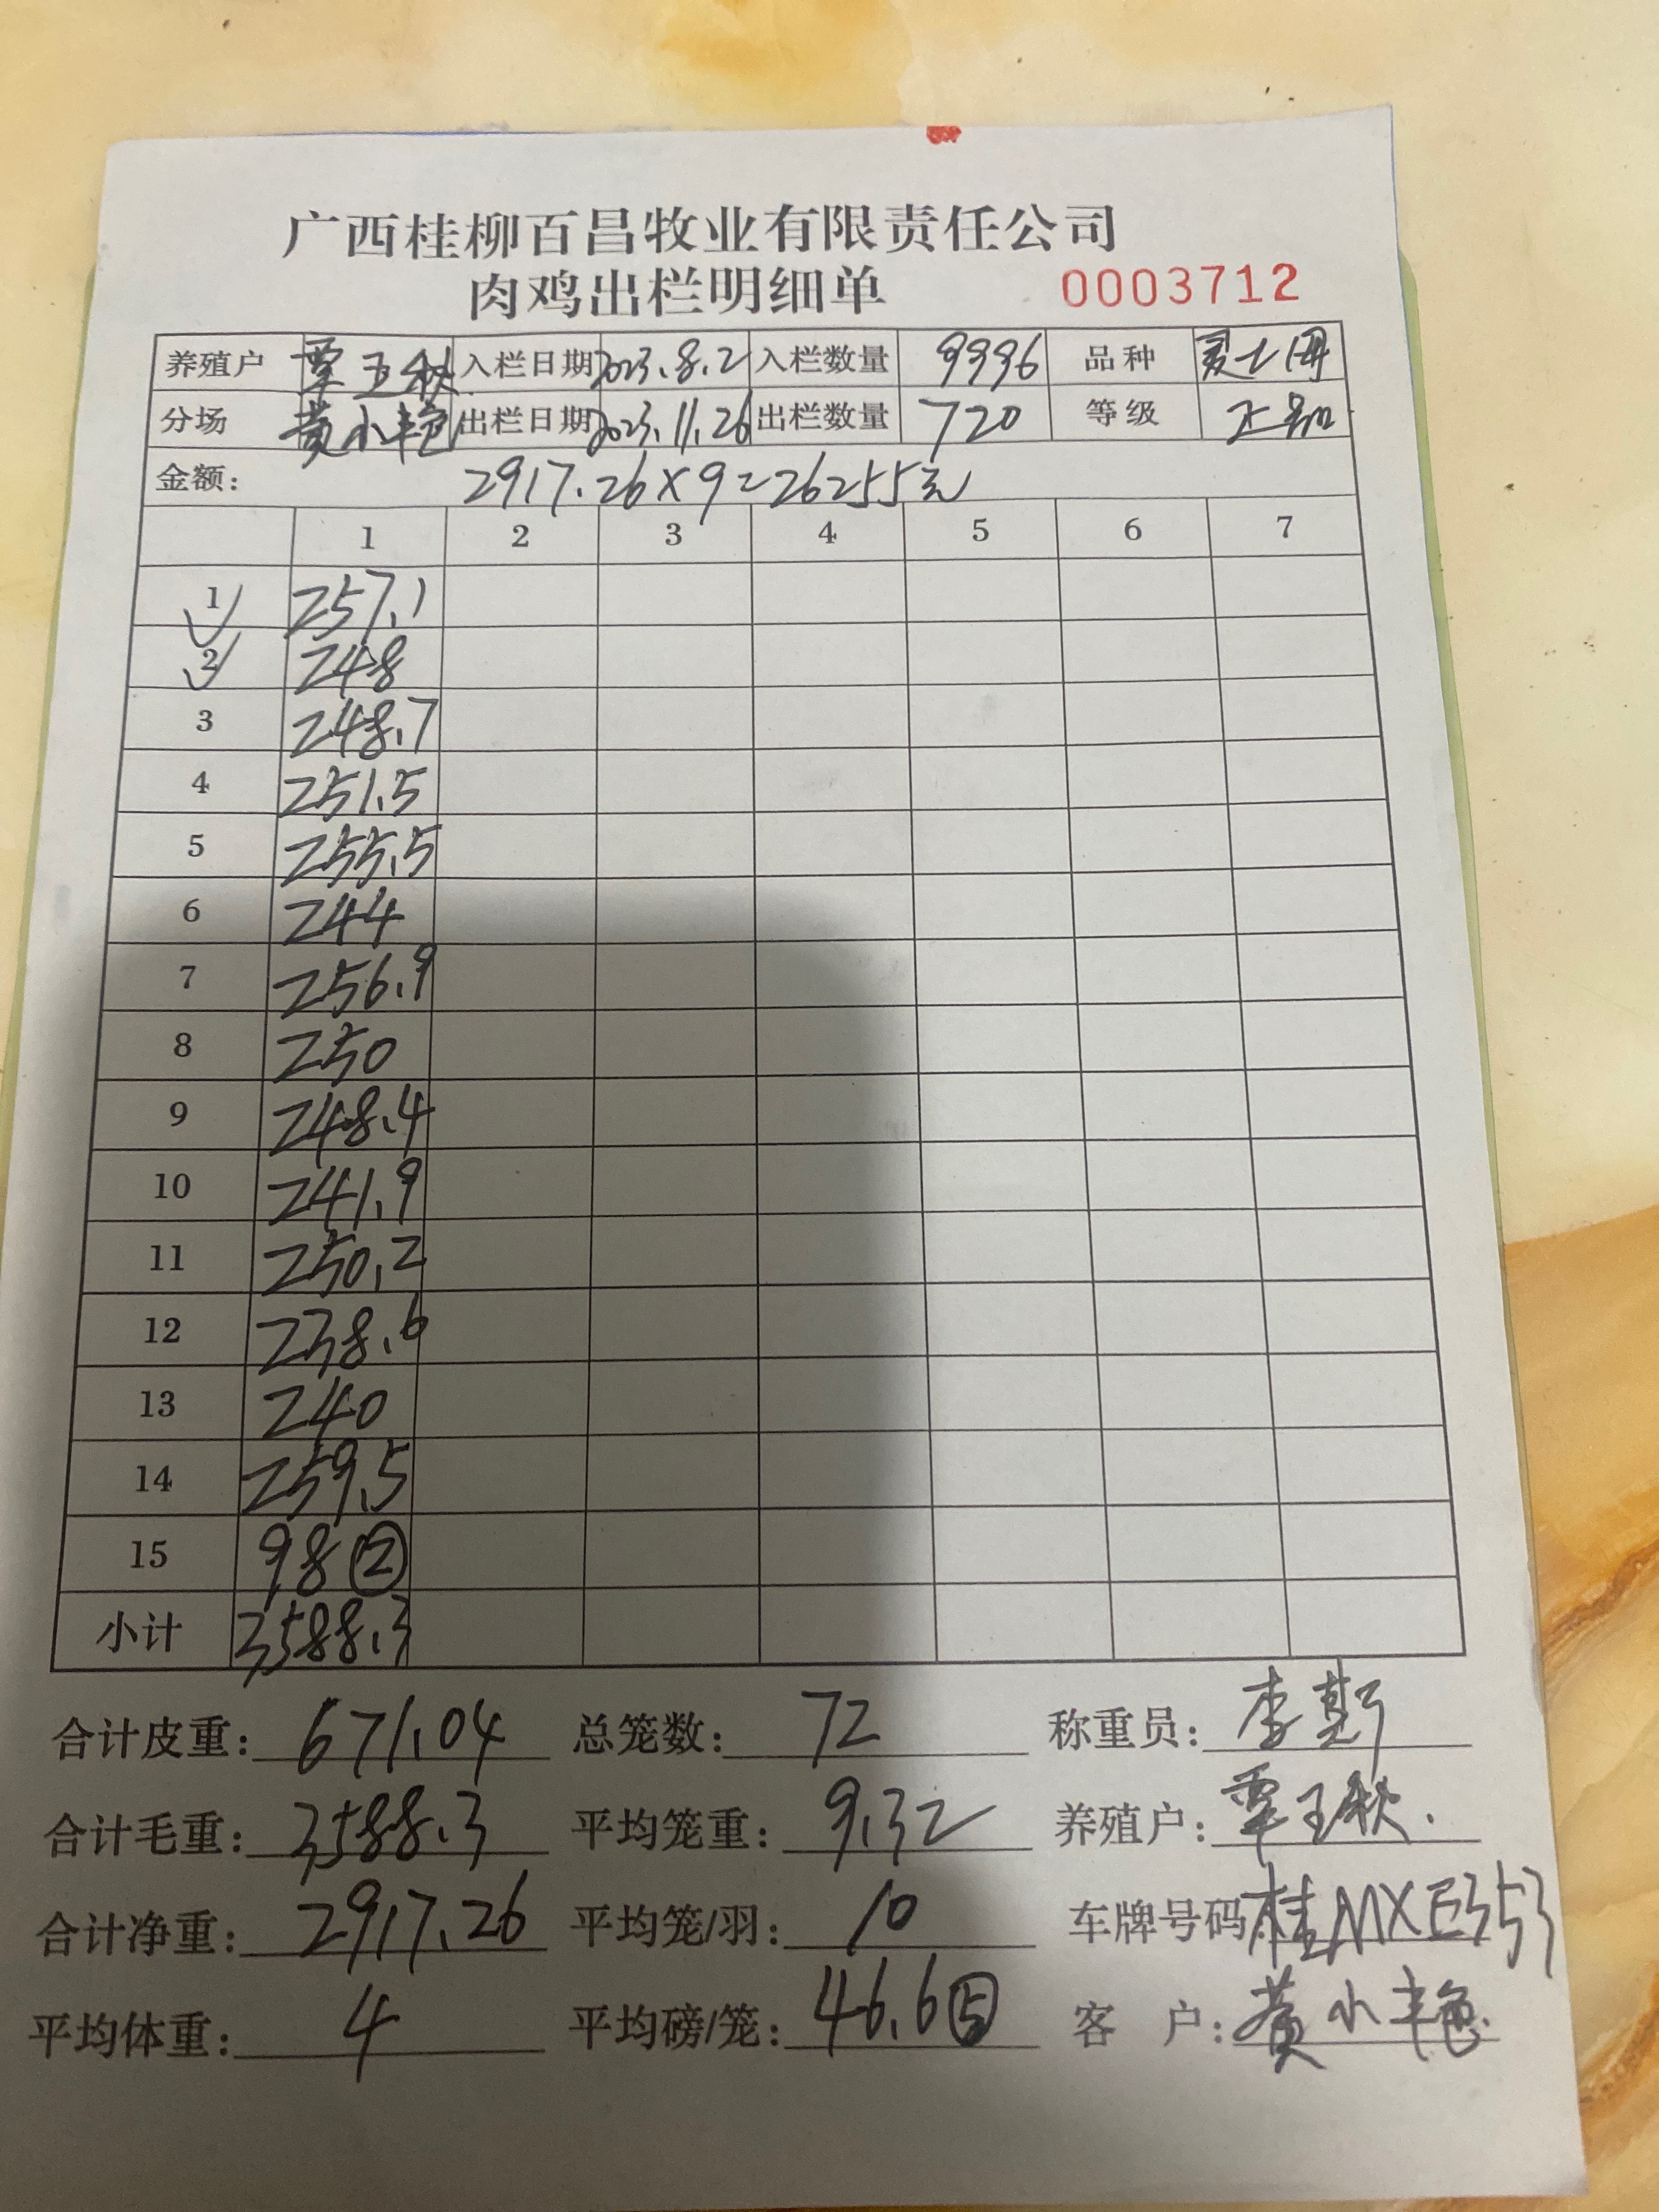 广西桂柳百昌牧业有限责任公司
肉鸡出栏明细单 0003712
养殖户 覃玉秋 入栏日期 2023.8.2 入栏数量 9996 品种
分场 黄小艳 出栏日期 2023.11.26 出栏数量 720 等级 正品
金额: 2917.26×9=26255元
1 2 3 4 5 6 7
1 257.1
2 248
3 248.7
4 251.5
5 255.5
6 244
7 256.9
8 250
9 248.4
10 241.9
11 250.2
12 238.6
13 240
14 259.5
15 98②
小计 3588.3
合计皮重: 671.04 总笼数: 72 称重员: 李斯
合计毛重: 3588.3 平均笼重: 9.32 养殖户: 覃玉秋.
合计净重: 2917.26 平均笼/羽: 10 车牌号码: 桂MXE353
平均体重: 4 平均磅/笼: 46.6⑤ 客户: 黄小艳